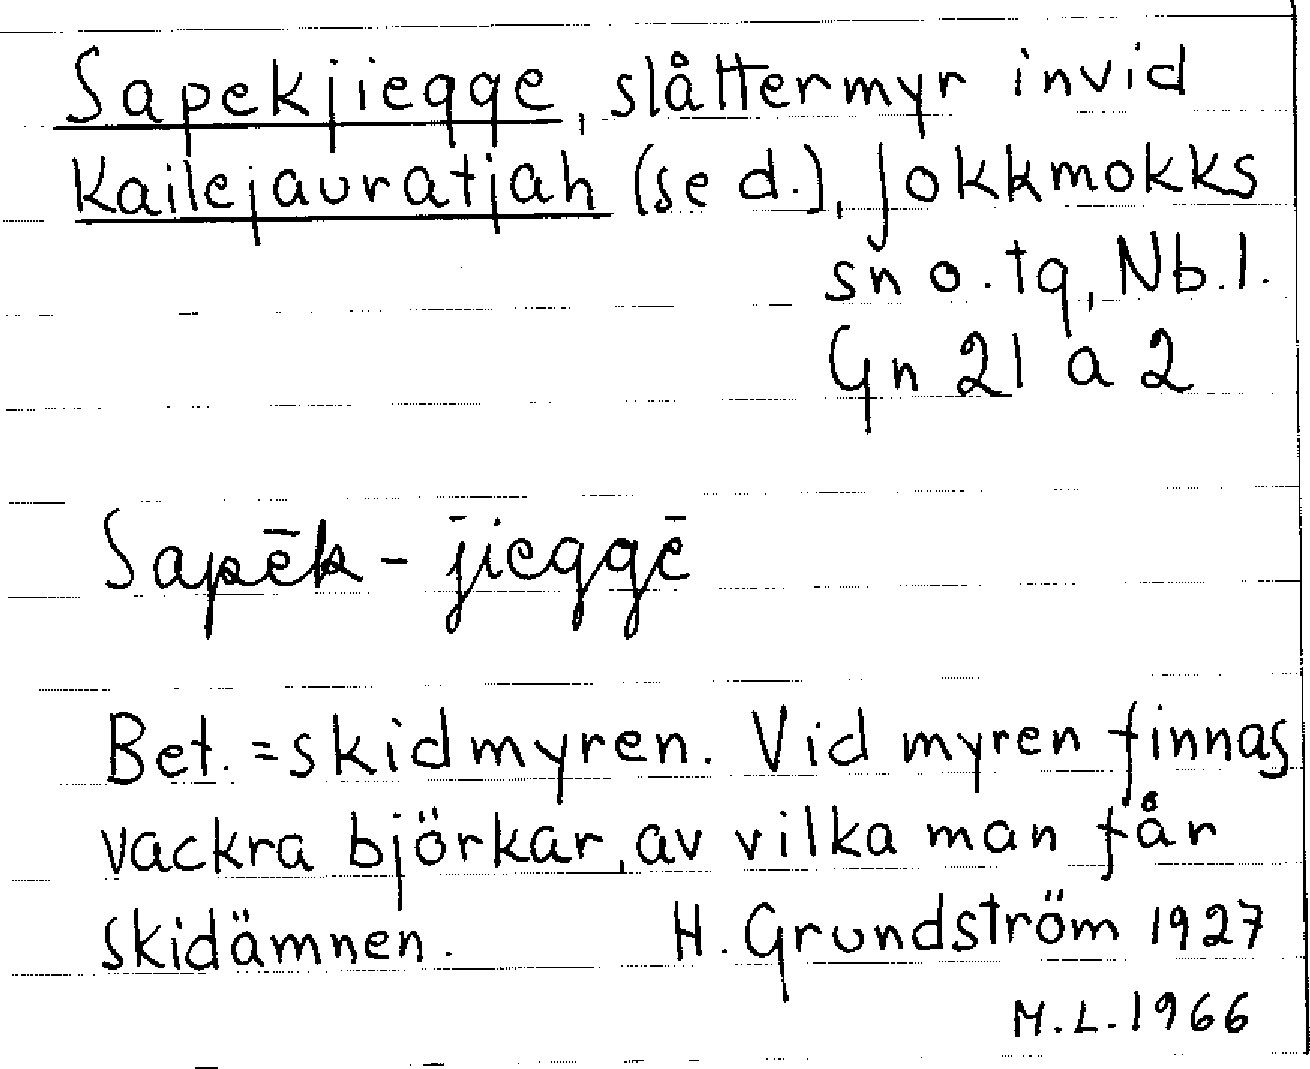 Sapekjiegge, slåttermyr invid
Kailejauratjah (se d.), Jokkmokks
sn o. tg, Nb. l.
Gn 21 a 2
Sapēk - j̄ieggē
Bet. = skidmyren. Vid myren finnas
vackra björkar, av vilka man får
skidämnen. H. Grundström 1927
M.L. 1966